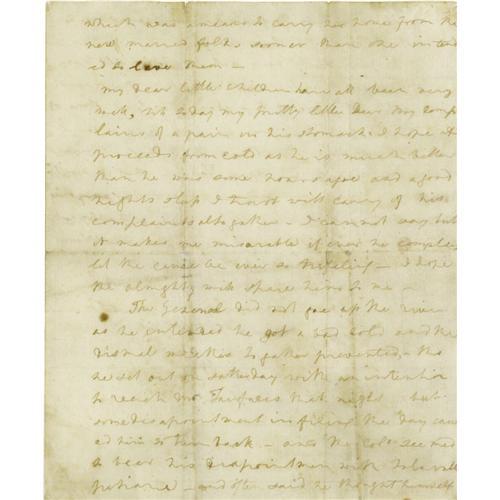 which was a means to carry her home from the
new married folks sooner than she intend
ed to leave them –
my dear little children have all been very
well, till to day my pretty little Dear Boy comp
lains of a pain in his stomach I hope it
proceeds from cold as he is much better
than he was some hours agoe and a good
nights sleep I trust will carry of his
complaints altogather – I cannot say but
it makes me miserable if ever he complains
let the cause be ever so trifeling – I hope
the almighty will spare him to me –
The General did not goe up the river
as he intended he got a bad cold and the
dismal weather to gather prevented – tho
he set out on satterday with an intention
to reach Mr Fairfaxs that night but
some disapointment in the day caus
ed him to turn back – and the Colo seemed
to bear his disapointment with
– and often said he thought himself